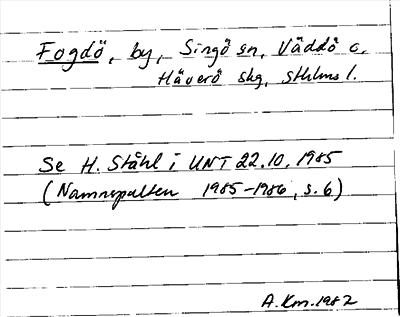 Fogdö, by, Singö sn, Väddö o.
Häverö skg, Sthlms l.
Se H. Ståhl i UNT 22.10.1985
(Namnspalten 1985-1986, s. 6)
A.Km.1987